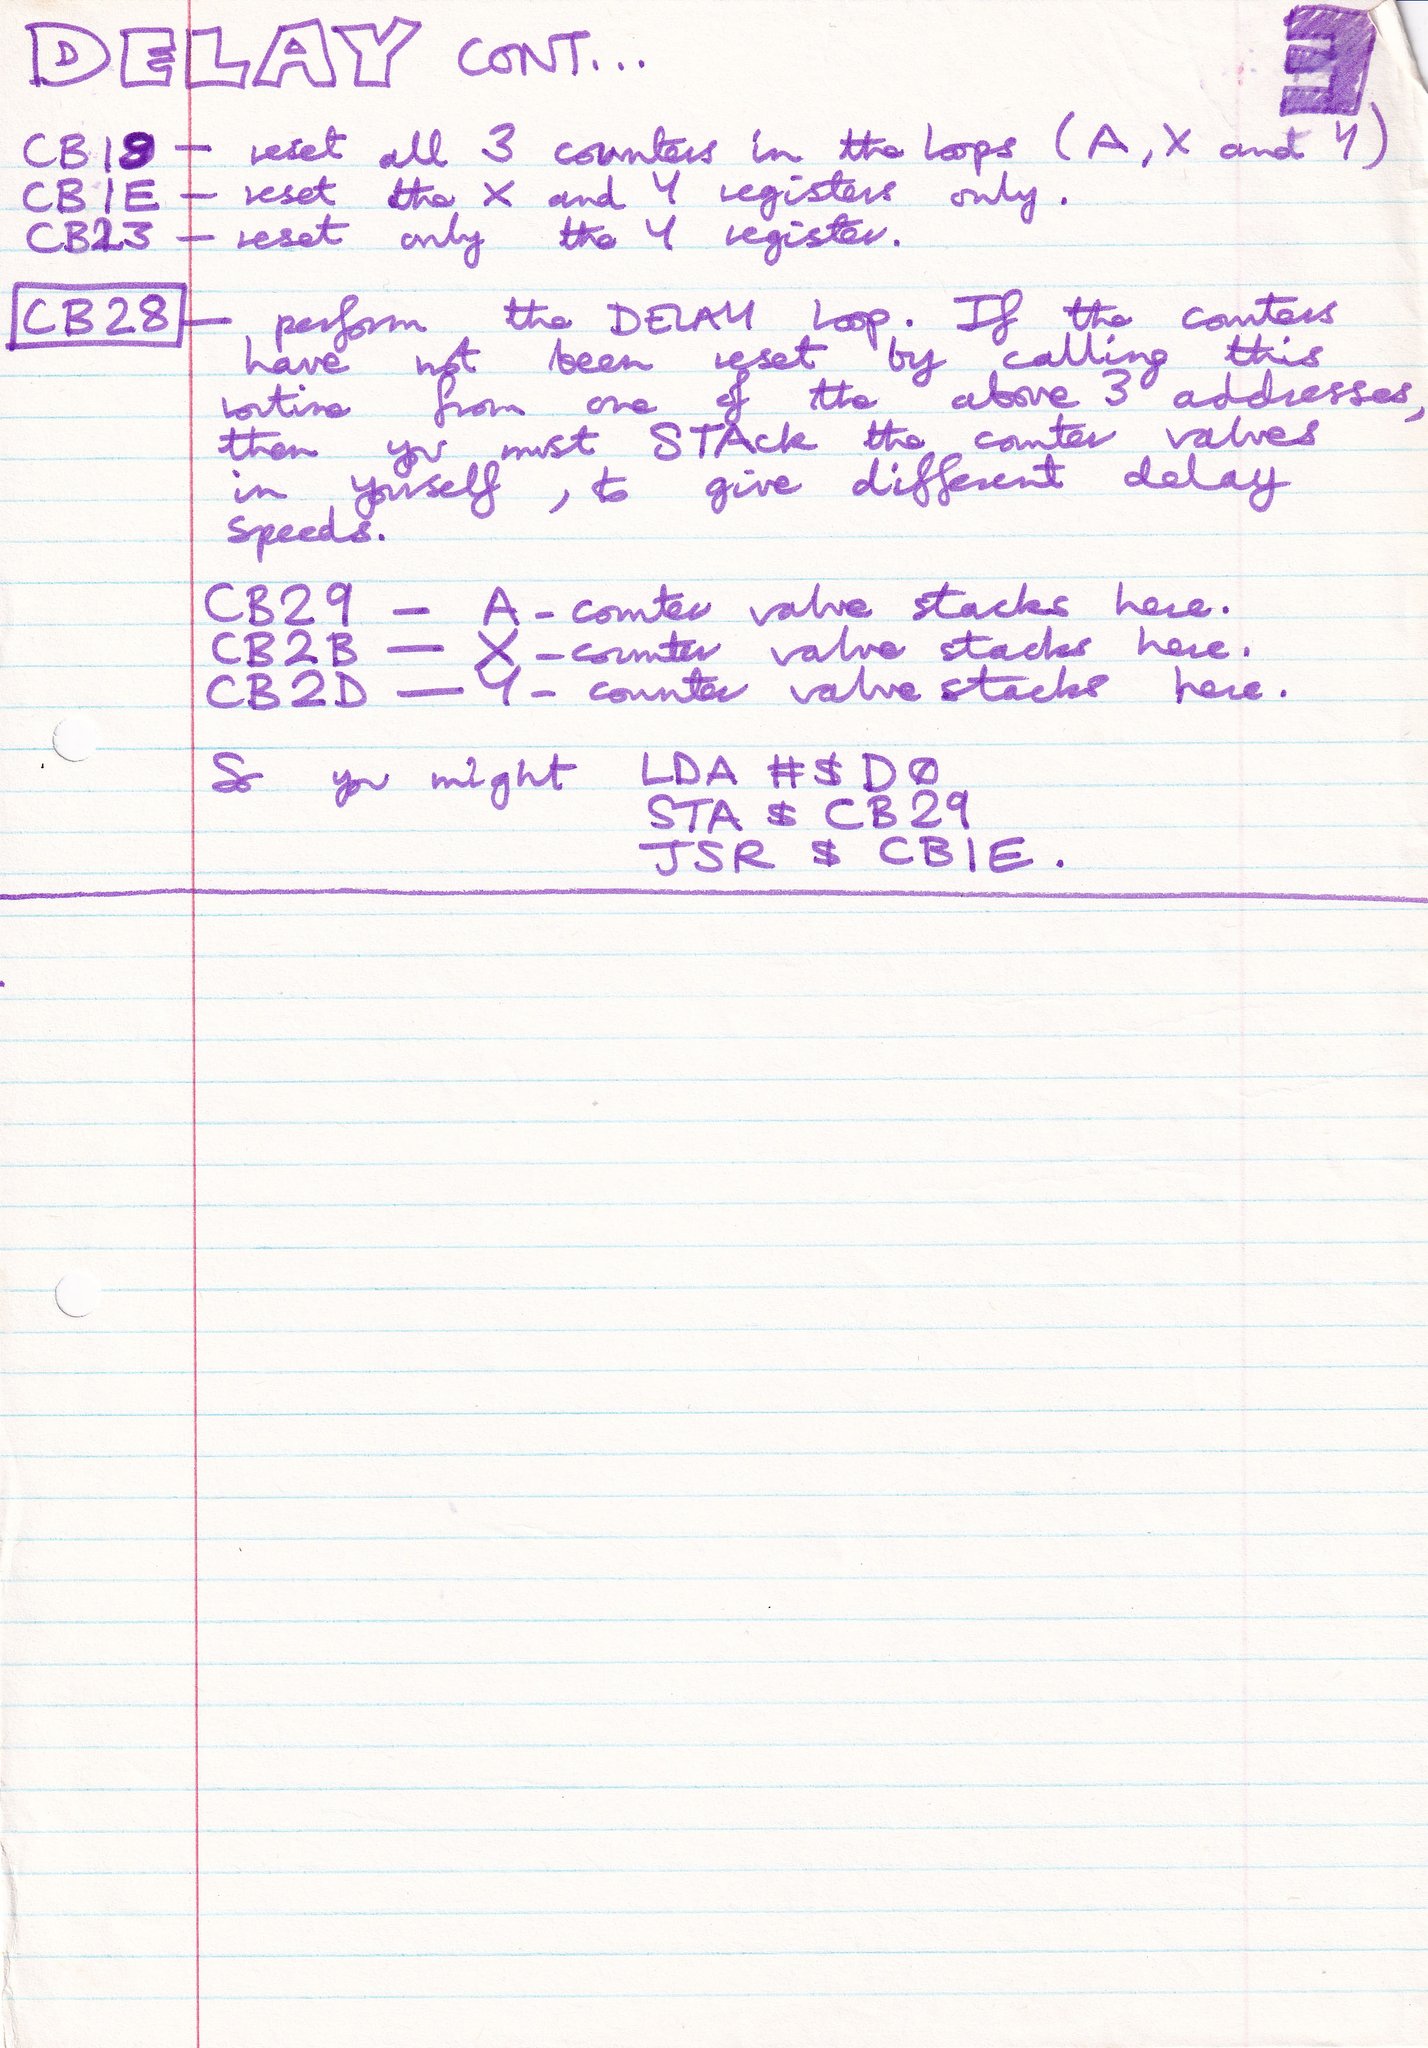 DELAY CONT... 3
CB19 – reset all 3 counters in the loops (A, X and Y)
CB1E – reset the X and Y registers only.
CB23 – reset only the Y register.
CB28 – perform the DELAY loop. If the counters
have not been reset by calling this
routine from one of the above 3 addresses,
then you must STAck the counter values
in yourself, to give different delay
speeds.
CB29 – A – counter value stacks here.
CB2B – X – counter value stacks here.
CB2D – Y – counter value stacks here.
So you might LDA #$D0
STA $ CB29
JSR $ CB1E.